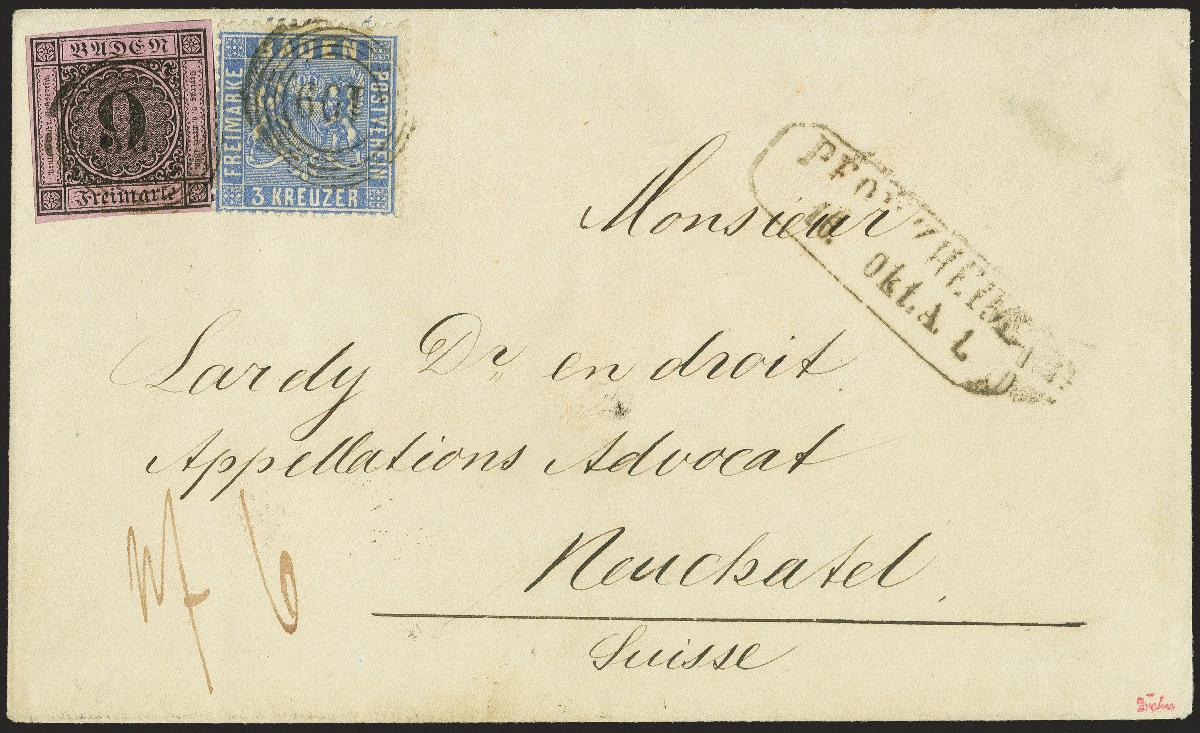 BADEN
9
Freimarke
BADEN
FREIMARKE
POSTVEREIN
3 KREUZER
109
PFORZHEIM
16. Okt. A. 1.
Monsieur
Lardy Dr en droit
Appellations Advocat
Neuchatel
Suisse
6